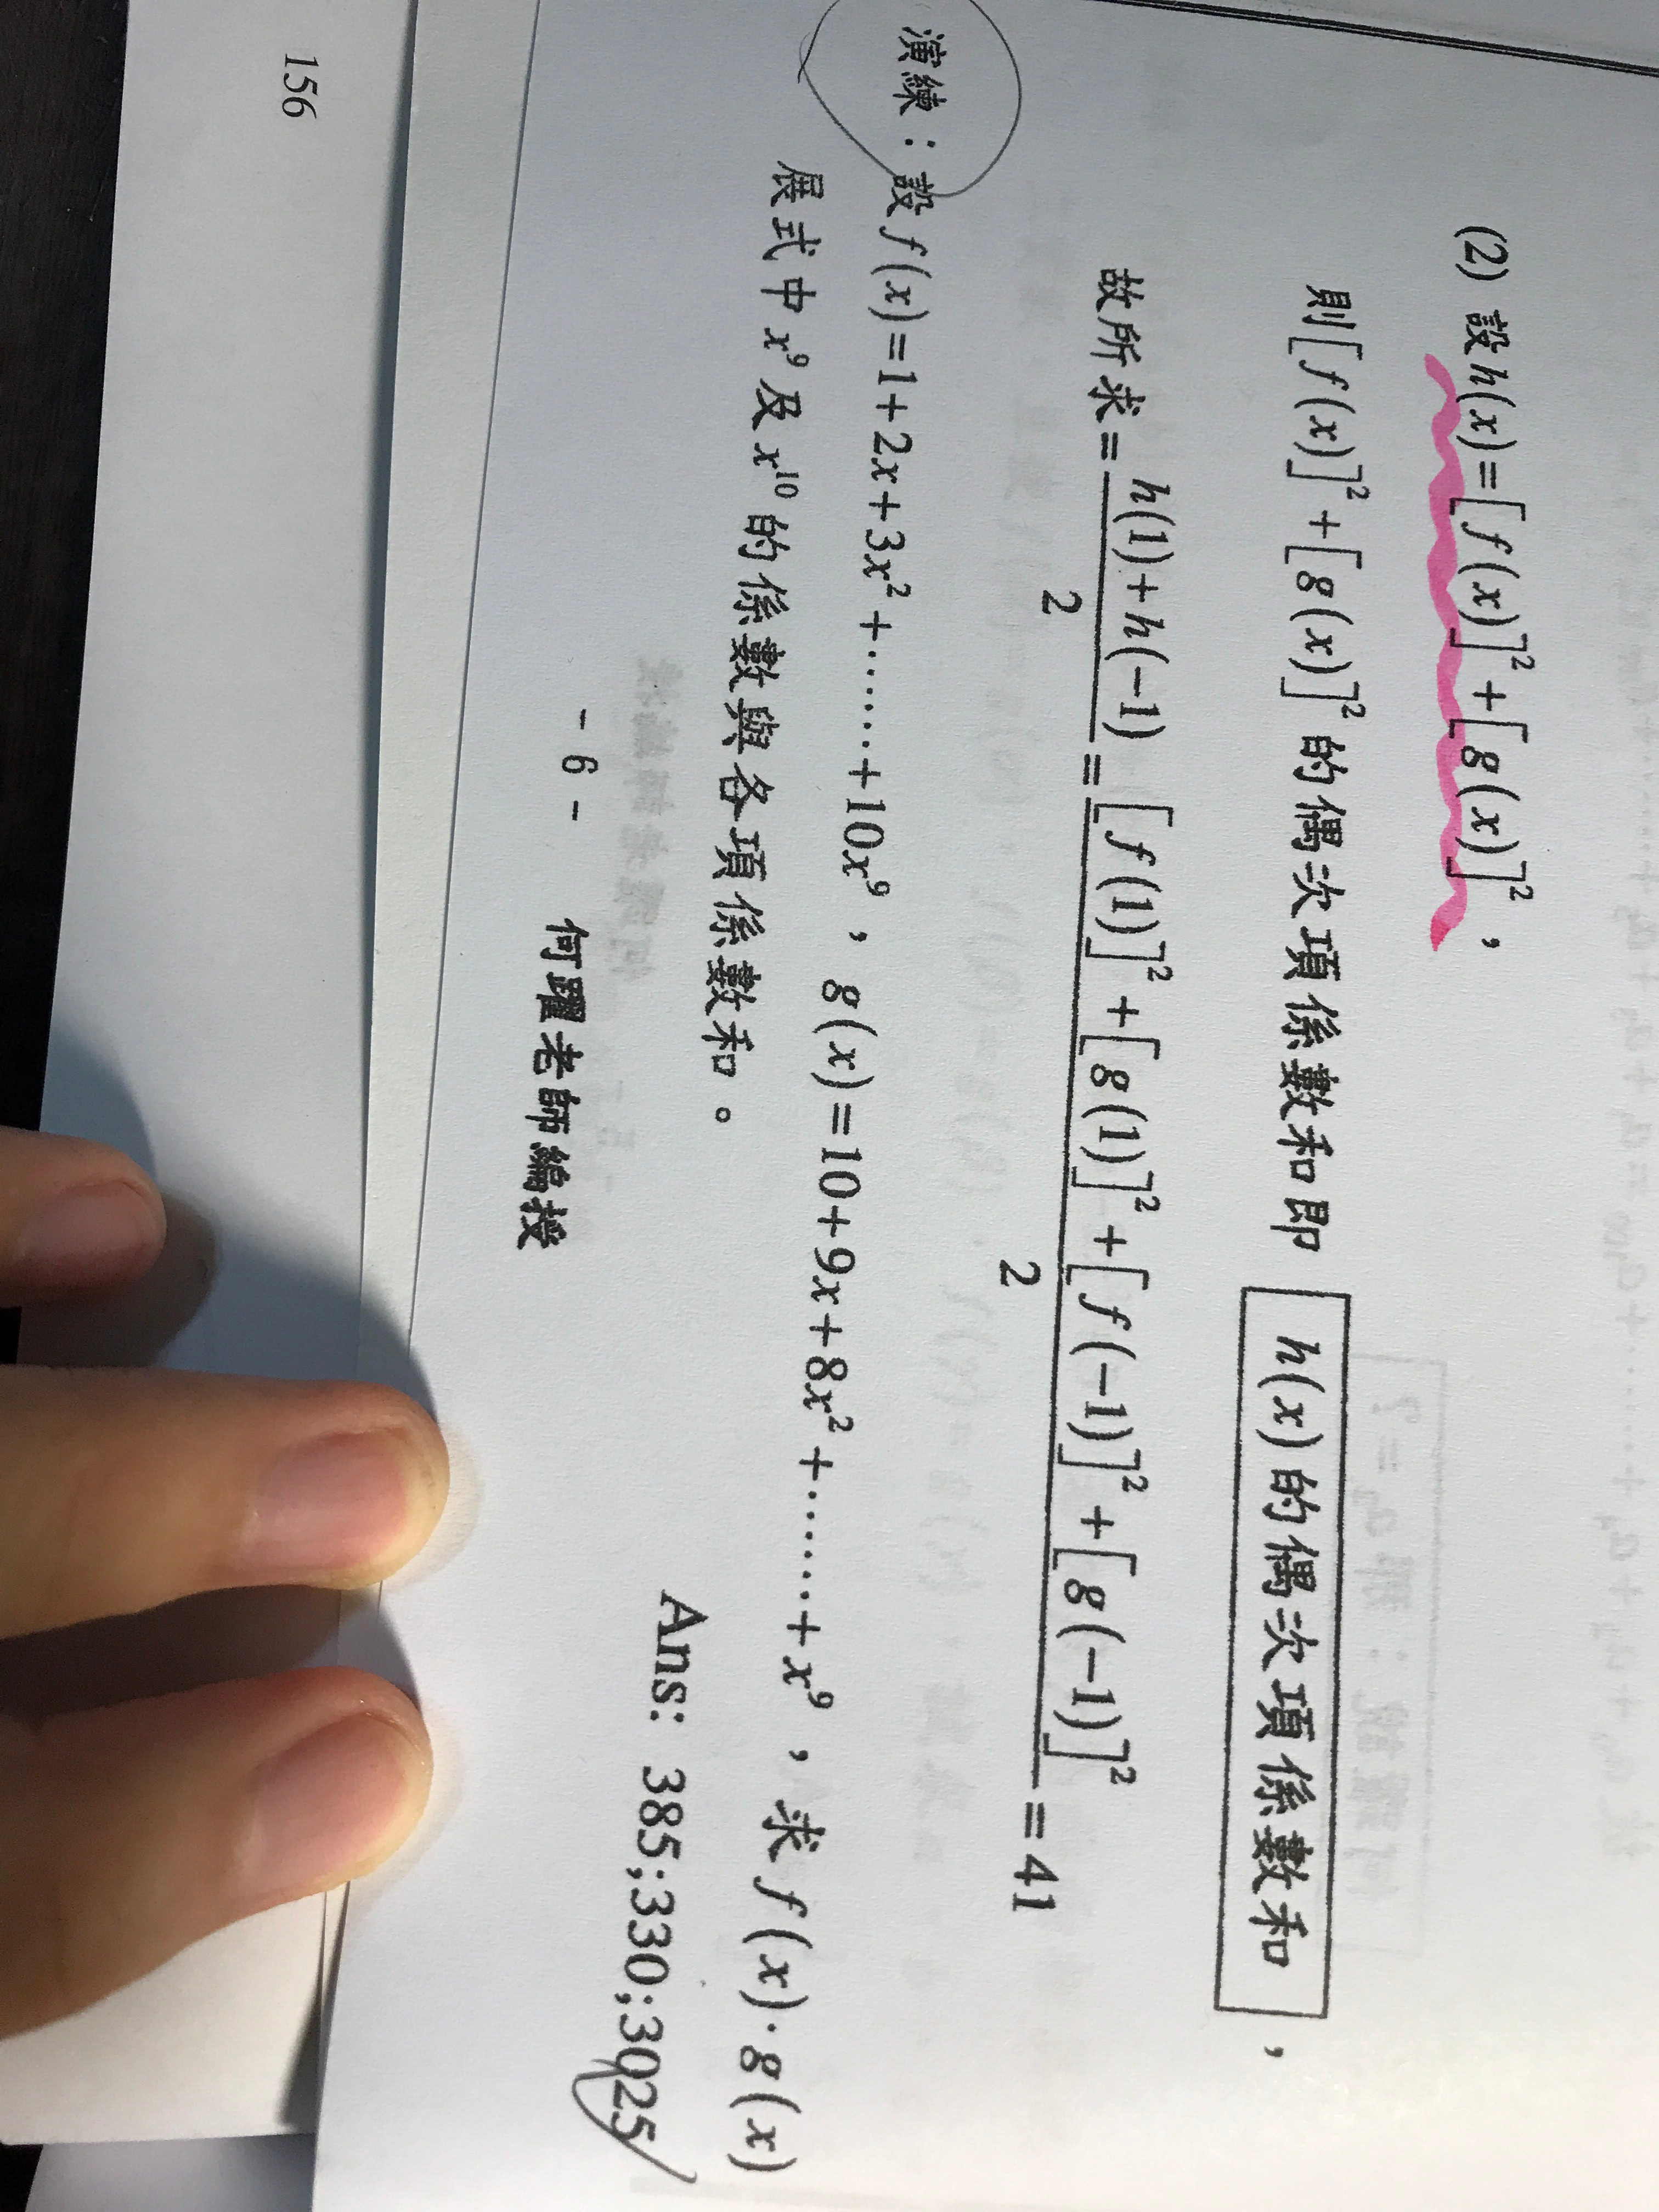 (2) 設h(x)=[f(x)]²+[g(x)]²，
則[f(x)]²+[g(x)]²的偶次項係數和即 h(x)的偶次項係數和，
故所求=\frac{h(1)+h(-1)}{2}=\frac{[f(1)]²+[g(1)]²+[f(-1)]²+[g(-1)]²}{2}=41
演練：設f(x)=1+2x+3x²+……+10x⁹，g(x)=10+9x+8x²+……+x⁹，求f(x)·g(x)
展式中x⁹及x¹⁰的係數與各項係數和。
Ans: 385;330;3025
- 6 - 何躍老師編授
156